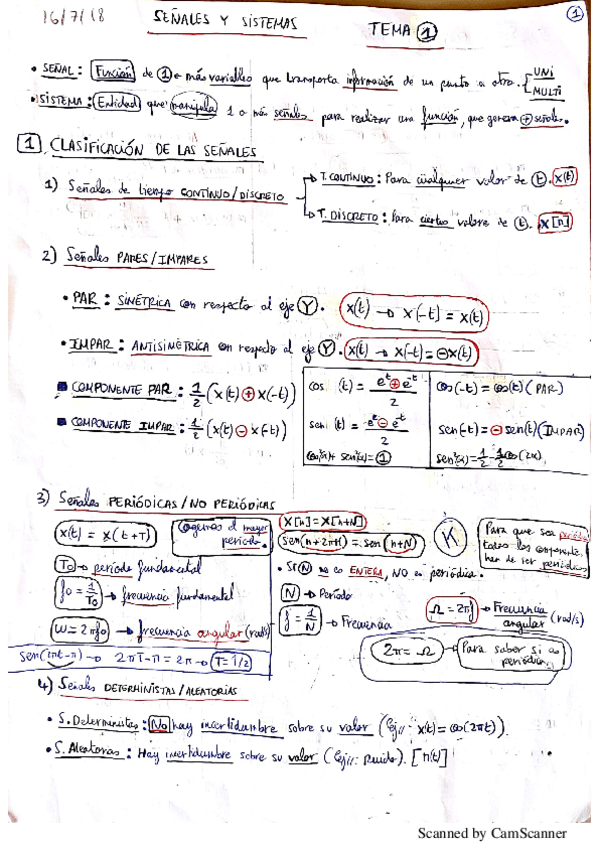 16/7/18 SEÑALES Y SISTEMAS TEMA 1
1
• SEÑAL: Función de 1 o más variables que transporta información de un punto a otro. UNI MULTI
• SISTEMA: Entidad que manipula 1 o más señales para realizar una función, que genera + señales.
1. CLASIFICACIÓN DE LAS SEÑALES
1) Señales de tiempo CONTINUO/DISCRETO
→ T. CONTINUO: Para cualquier valor de t. x(t)
→ T. DISCRETO: Para ciertos valores de t. x[n]
2) Señales PARES/IMPARES
• PAR: SIMÉTRICA con respecto al eje Y. x(t) → x(-t) = x(t)
• IMPAR: ANTISIMÉTRICA con respecto al eje Y. x(t) → x(-t) = -x(t)
■ COMPONENTE PAR: 1/2 (x(t) + x(-t))
■ COMPONENTE IMPAR: 1/2 (x(t) - x(-t))
cos (t) = e^t + e^-t / 2
sen (t) = e^t - e^-t / 2
cos²(x) + sen²(x) = 1
cos(-t) = cos(t) (PAR)
sen(-t) = -sen(t) (IMPAR)
sen²(x) = 1/2 - 1/2 cos(2x)
3) Señales PERIÓDICAS/NO PERIÓDICAS
x(t) = x(t+T)
Cogemos el mayor periodo.
T0 → periodo fundamental
f0 = 1/T0 → frecuencia fundamental
W = 2πf0 → frecuencia angular (rad/s)
sen(2πt-π) → 2πT-π = 2π → T = 1/2
x[n] = x[n+N]
sen(n+2π) = sen(n+N)
• Si N no es ENTERA, NO es periódica.
N → Periodo
f = 1/N → Frecuencia
K
Para que sea periódica todos los componentes han de ser periódicos
Ω = 2πf → Frecuencia angular (rad/s)
2π = Ω → Para saber si es periódica.
4) Señales DETERMINISTAS/ALEATORIAS
• S. Deterministas: No hay incertidumbre sobre su valor (Ej//: x(t) = cos(2πt)).
• S. Aleatorias: Hay incertidumbre sobre su valor (Ej//: Ruido). [n(t)]
Scanned by CamScanner